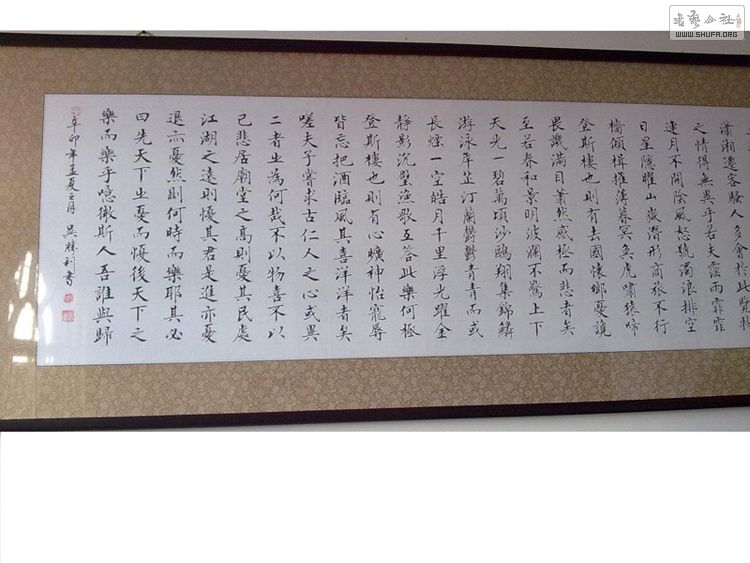 瀟湘遷客騷人多會於此覽物
之情得無異乎若夫霪雨霏霏
連月不開陰風怒號濁浪排空
日星隱曜山嶽潛形商旅不行
檣傾楫摧薄暮冥冥虎嘯猿啼
登斯樓也則有去國懷鄉憂讒
畏譏滿目蕭然感極而悲者矣
至若春和景明波瀾不驚上下
天光一碧萬頃沙鷗翔集錦鱗
游泳岸芷汀蘭鬱鬱青青而或
長煙一空皓月千里浮光躍金
靜影沉璧漁歌互答此樂何極
登斯樓也則有心曠神怡寵辱
皆忘把酒臨風其喜洋洋者矣
嗟夫予嘗求古仁人之心或異
二者之為何哉不以物喜不以
己悲居廟堂之高則憂其民處
江湖之遠則憂其君是進亦憂
退亦憂然則何時而樂耶其必
曰先天下之憂而憂後天下之
樂而樂乎噫微斯人吾誰與歸
辛卯年孟夏之月 吳勝利書
书艺公社
WWW.SHUFA.ORG